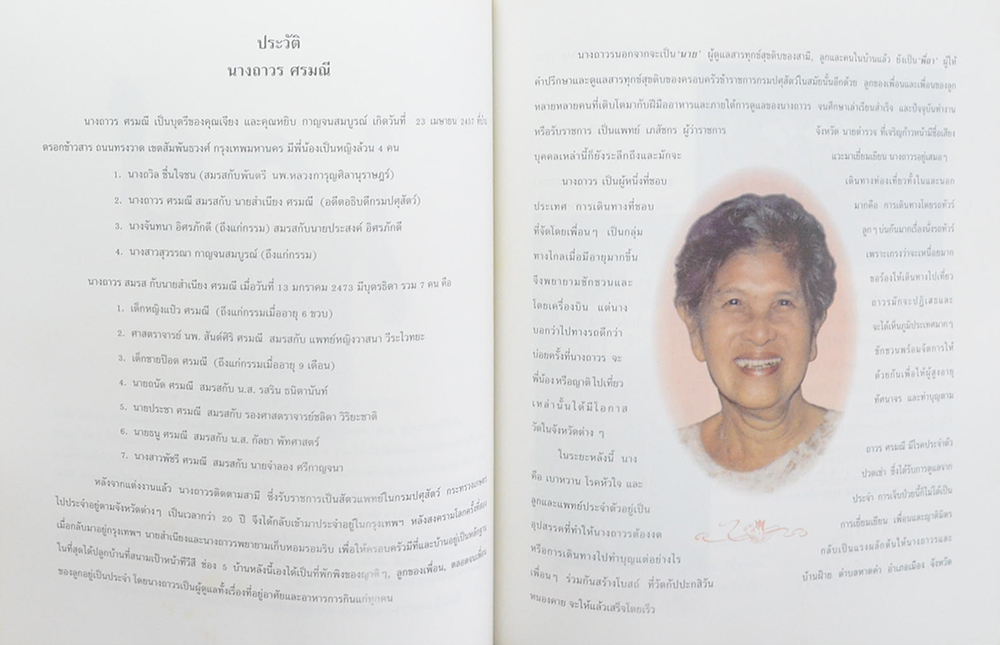 ประวัติ
นางถาวร ศรมณี
นางถาวร ศรมณี เป็นบุตรีของคุณเจียง และคุณหยิบ กาญจนสมบูรณ์ เกิดวันที่ 23 เมษายน 2457 ที่บ้าน
ตรอกข้าวสาร ถนนทรงวาด เขตสัมพันธวงศ์ กรุงเทพมหานคร มีพี่น้องเป็นหญิงล้วน 4 คน
1. นางถวิล ชื่นใจชน (สมรสกับพันตรี นพ.หลวงการุญศิลานุราษฎร์)
2. นางถาวร ศรมณี สมรสกับ นายสำเนียง ศรมณี (อดีตอธิบดีกรมปศุสัตว์)
3. นางจันทนา อิศรภักดี (ถึงแก่กรรม) สมรสกับนายประสงค์ อิศรภักดี
4. นางสาวสุวรรณา กาญจนสมบูรณ์ (ถึงแก่กรรม)
นางถาวร สมรส กับนายสำเนียง ศรมณี เมื่อวันที่ 13 มกราคม 2473 มีบุตรธิดา รวม 7 คน คือ
1. เด็กหญิงแป๋ว ศรมณี (ถึงแก่กรรมเมื่ออายุ 6 ขวบ)
2. ศาสตราจารย์ นพ. สันต์ศิริ ศรมณี สมรสกับ แพทย์หญิงวาสนา วีระไวทยะ
3. เด็กชายป๊อด ศรมณี (ถึงแก่กรรมเมื่ออายุ 9 เดือน)
4. นายถนัด ศรมณี สมรสกับ น.ส. รสริน ธนิตานันท์
5. นายประชา ศรมณี สมรสกับ รองศาสตราจารย์ชลิดา วิริยะชาติ
6. นายธนู ศรมณี สมรสกับ น.ส. กัลยา พัทศาสตร์
7. นางสาวพัชรี ศรมณี สมรสกับ นายจำลอง ศรีกาญจนา
หลังจากแต่งงานแล้ว นางถาวรติดตามสามี ซึ่งรับราชการเป็นสัตวแพทย์ในกรมปศุสัตว์ กระทรวงเกษตร
ไปประจำอยู่ตามจังหวัดต่างๆ เป็นเวลากว่า 20 ปี จึงได้กลับเข้ามาประจำอยู่ในกรุงเทพฯ หลังสงครามโลกครั้งที่สอง
เมื่อกลับมาอยู่กรุงเทพฯ นายสำเนียงและนางถาวรพยายามเก็บหอมรอมริบ เพื่อให้ครอบครัวมีที่และบ้านอยู่เป็นหลักฐาน
ในที่สุดได้ปลูกบ้านที่สนามเป้าหน้าทีวีสี ช่อง 5 บ้านหลังนี้เองได้เป็นที่พักพิงของญาติๆ, ลูกของเพื่อน, ตลอดจนเพื่อน
ของลูกอยู่เป็นประจำ โดยนางถาวรเป็นผู้ดูแลทั้งเรื่องที่อยู่อาศัยและอาหารการกินแก่ทุกคน
นางถาวรนอกจากจะเป็น 'นาย' ผู้ดูแลสารทุกข์สุขดิบของสามี, ลูกและคนในบ้านแล้ว ยังเป็น 'พี่ถา' ผู้ให้
คำปรึกษาและดูแลสารทุกข์สุขดิบของครอบครัวข้าราชการกรมปศุสัตว์ในสมัยนั้นอีกด้วย ลูกของเพื่อนและเพื่อนของลูก
หลายหลายคนที่เติบโตมากับฝีมืออาหารและภายใต้การดูแลของนางถาวร จนศึกษาเล่าเรียนสำเร็จ และปัจจุบันทำงาน
หรือรับราชการ เป็นแพทย์ เภสัชกร ผู้ว่าราชการ จังหวัด นายตำรวจ ที่เจริญก้าวหน้ามีชื่อเสียง
บุคคลเหล่านี้ก็ยังระลึกถึงและมักจะ แวะมาเยี่ยมเยียน นางถาวรอยู่เสมอๆ
นางถาวร เป็นผู้หนึ่งที่ชอบ เดินทางท่องเที่ยวทั้งในและนอก
ประเทศ การเดินทางที่ชอบ มากคือ การเดินทางโดยรถทัวร์
ที่จัดโดยเพื่อนๆ เป็นกลุ่ม ลูกๆ บ่นกันมากเรื่องนั่งรถทัวร์
ทางไกลเมื่อมีอายุมากขึ้น เพราะเกรงว่าจะเหนื่อยมาก
จึงพยายามชักชวนและ ขอร้องให้เดินทางไปเที่ยว
โดยเครื่องบิน แต่นาง ถาวรมักจะปฏิเสธและ
บอกว่าไปทางรถดีกว่า จะได้เห็นภูมิประเทศมากๆ
บ่อยครั้งที่นางถาวร จะ ชักชวนพร้อมจัดการให้
พี่น้องหรือญาติไปเที่ยว ด้วยกันเพื่อให้ผู้สูงอายุ
เหล่านั้นได้มีโอกาส ทัศนาจร และทำบุญตาม
วัดในจังหวัดต่าง ๆ
ในระยะหลังนี้ นาง ถาวร ศรมณี มีโรคประจำตัว
คือ เบาหวาน โรคหัวใจ และ ปวดเข่า ซึ่งได้รับการดูแลจาก
ลูกและแพทย์ประจำตัวอยู่เป็น ประจำ การเจ็บป่วยนี้ก็ไม่ได้เป็น
อุปสรรคที่ทำให้นางถาวรต้องงด การเยี่ยมเยียน เพื่อนและญาติมิตร
หรือการเดินทางไปทำบุญแต่อย่างไร กลับเป็นแรงผลักดันให้นางถาวรและ
เพื่อนๆ ร่วมกันสร้างโบสถ์ ที่วัดกัปปะกสิวัน บ้านฝ้าย ตำบลหาดคำ อำเภอเมือง จังหวัด
หนองคาย จะให้แล้วเสร็จโดยเร็ว